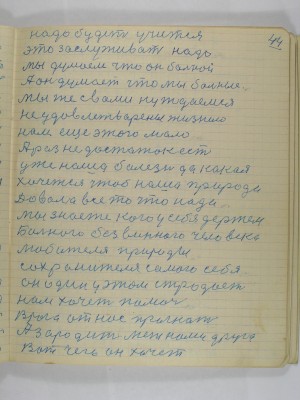 44
надо будить учится
это заслуживать надо
мы думаем что он болной
А он думает что мы болные
мы же с вами нуждаемся
неудовлетварены жизнию
нам еще этого мало
А раз не достаток ест
уже наша болезн да какая
хочется чтоб наша природа
довала все то что нада
мы знаете кого у себя держем
Болного безвинного человека
любителя природы
сохранителя самого себя
он один у этом страдает
нам хочет помоч
Врага от нас прогнат
А зародит меж нами друга
Вот чего он хочет